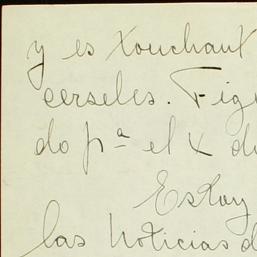 y es touchant
cerseles. Fig
do pª el x d
Estoy
las noticias d